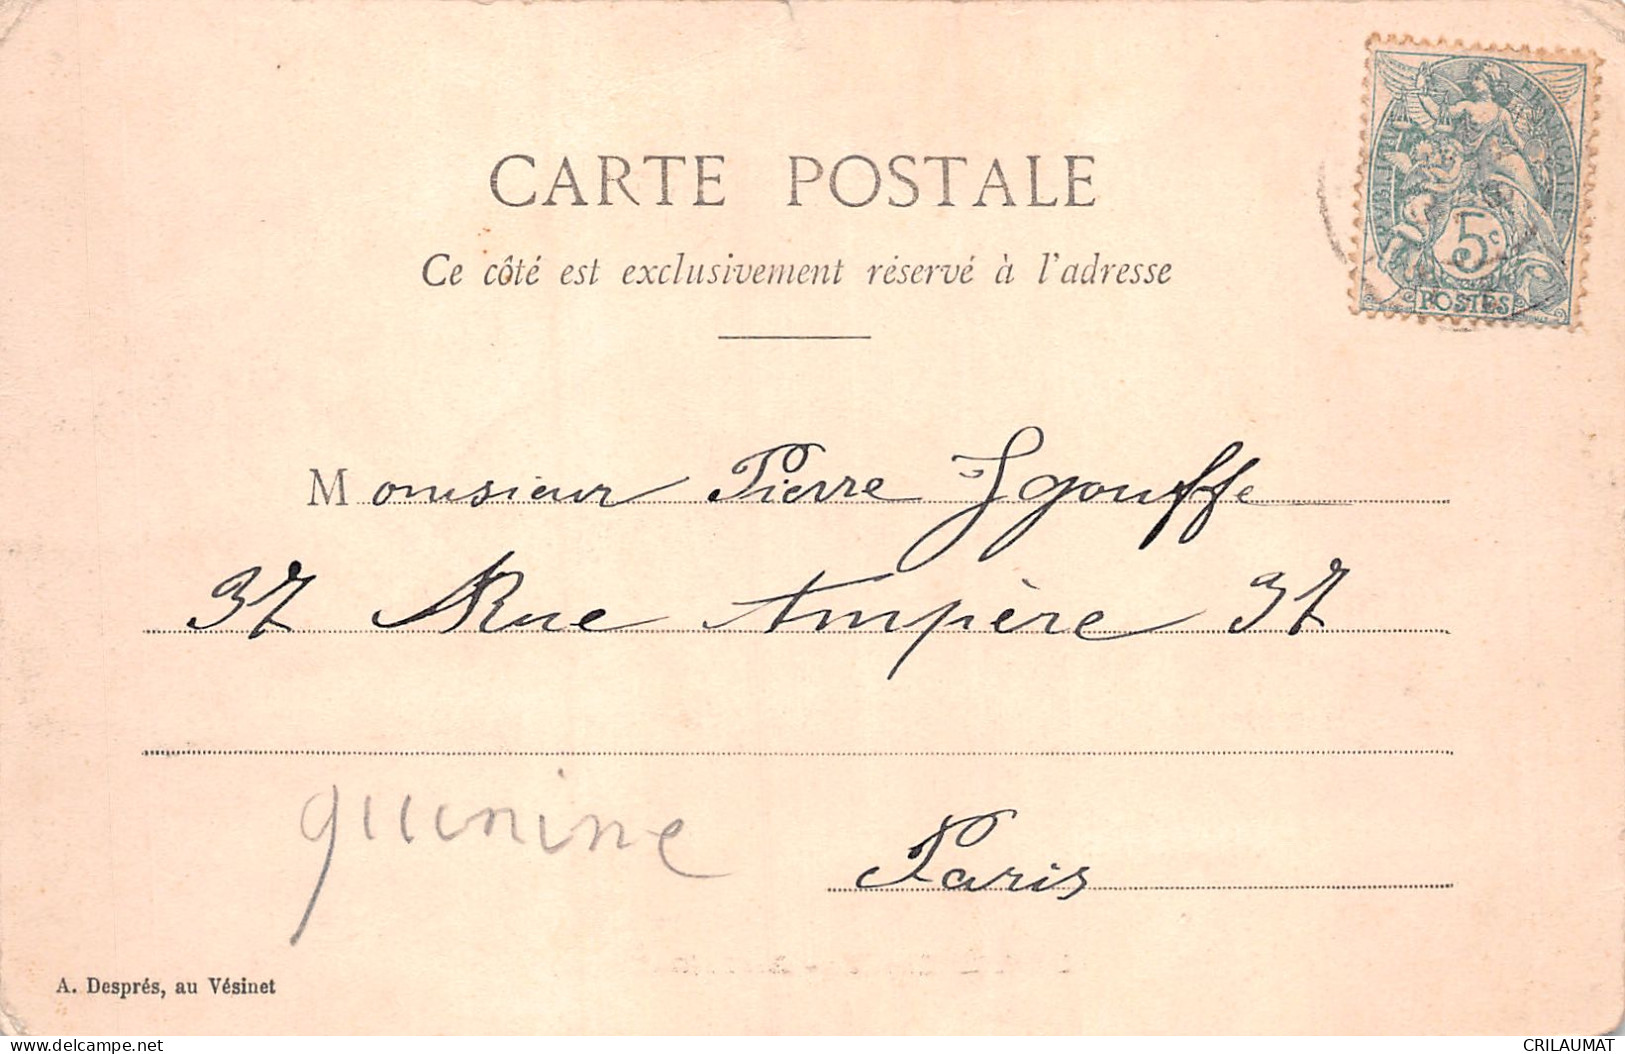 RÉPUBLIQUE FRANÇAISE
5c
POSTES
CARTE POSTALE
Ce côté est exclusivement réservé à l'adresse
Monsieur Pierre Jgouffe
37 Rue Ampère 37
quinine
Paris
A. Després, au Vésinet
delcampe.net
CRILAUMAT